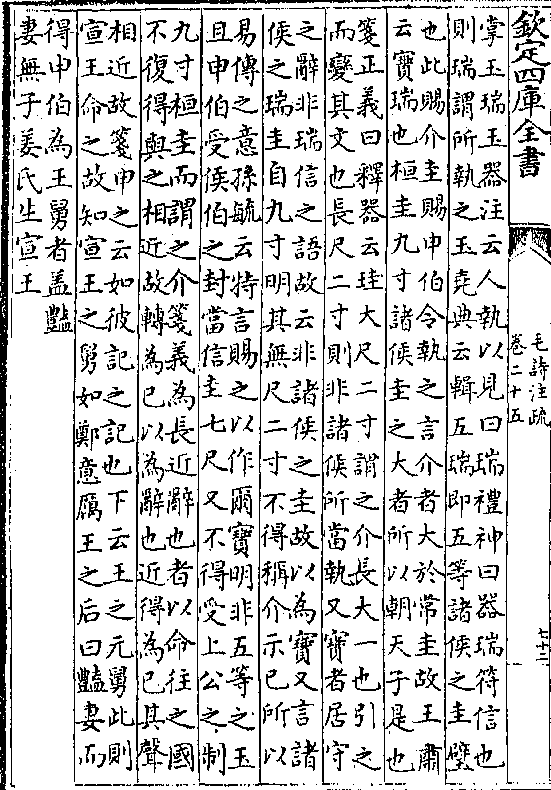 欽定四庫全書
毛詩注疏
卷二十五
七十二
掌玉瑞玉器注云人執以見曰瑞禮神曰器瑞符信也
則瑞謂所執之玉堯典云輯五瑞即五等諸侯之圭璧
也此賜介圭賜申伯令執之言介者大於常圭故王肅
云寶瑞也桓圭九寸諸侯圭之大者所以朝天子是也
箋正義曰釋器云珪大尺二寸謂之介長大一也引之
而變其文也長尺二寸則非諸侯所當執又寶者居守
之辭非瑞信之語故云非諸侯之圭故以為寶又言諸
侯之瑞圭自九寸明其無尺二寸不得稱介示已所以
易傳之意孫毓云特言賜之以作爾寶明非五等之玉
且申伯受侯伯之封當信圭七尺又不得受上公之制
九寸桓圭而謂之介箋義為長近辭也者以命往之國
不復得與之相近故轉為已以為辭也近得為已其聲
相近故箋申之云如彼記之記也下云王之元舅此則
宣王命之故知宣王之舅如鄭意厲王之后曰豔妻而
得申伯為王舅者盖豔
妻無子姜氏生宣王